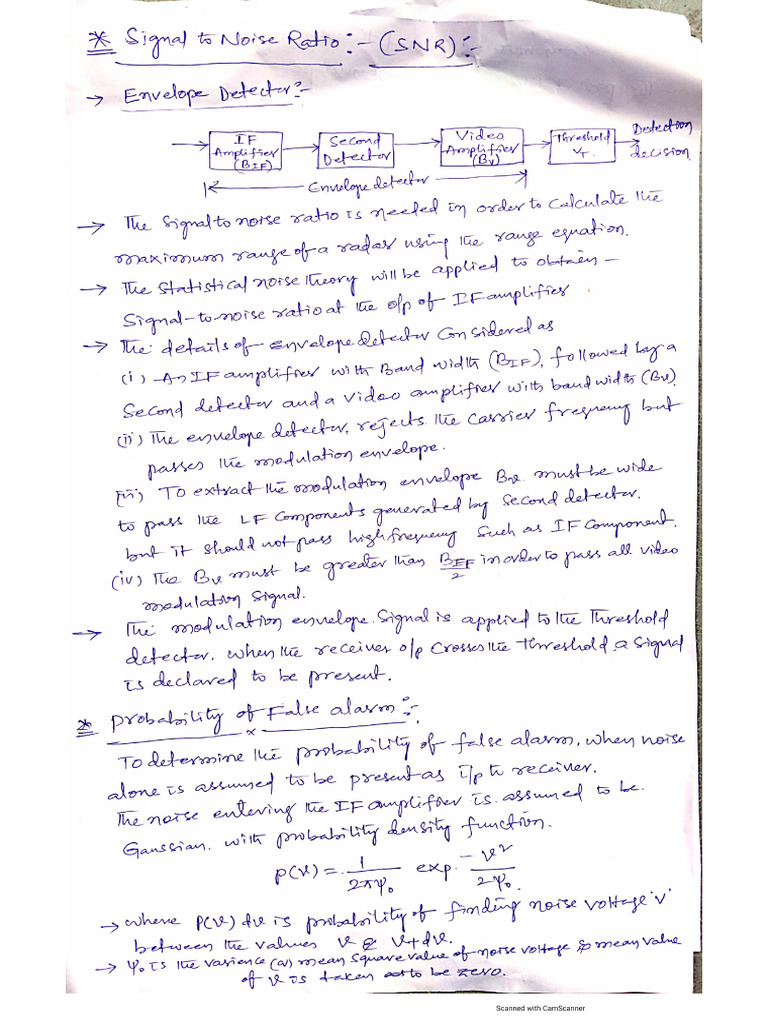 * Signal to Noise Ratio :- (SNR) :-
→ Envelope Detector :-
IF Amplifier (BIF)
Second Detector
Video Amplifier (Bv)
Threshold VT.
Detection decision
Envelope detector
→ The Signal to noise ratio is needed in order to calculate the
maximum range of a radar using the range equation.
→ The Statistical noise theory will be applied to obtain –
Signal-to-noise ratio at the o/p of IF amplifier
→ The details of envelope detector Considered as
(i) An IF amplifier with Band width (BIF), followed by a
Second detector and a video amplifier with band width (Bv).
(ii) The envelope detector, rejects the carrier frequency but
passes the modulation envelope.
(iii) To extract the modulation envelope Bv must be wide
to pass the LF Components generated by Second detector.
but it should not pass high frequency Such as IF Component.
(iv) The Bv must be greater than BIF/2 in order to pass all video
modulation Signal.
→ The modulation envelope Signal is applied to the Threshold
detector. when the receiver o/p Crosses the threshold a Signal
is declared to be present.
* Probability of False alarm :-
To determine the probability of false alarm, when noise
alone is assumed to be present as i/p to receiver.
The noise entering the IF amplifier is assumed to be
Gaussian with probability density function.
p(v) = 1/2πψ₀ exp -v²/2ψ₀
→ where P(v) dv is probability of finding noise voltage 'v'
between the values v & v+dv.
→ ψ₀ is the varience (or) mean square value of noise voltage & mean value
of v is taken to be zero.
Scanned with CamScanner